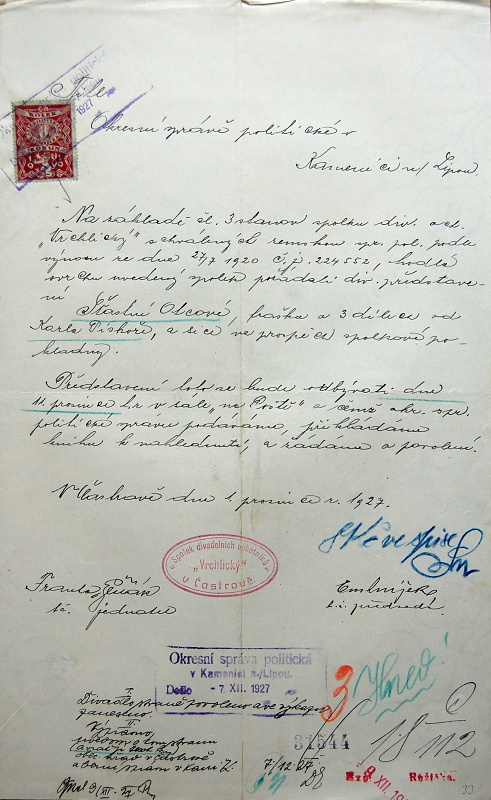 Okresní správě politické v
Kamenici n/Lipou.
Na základě čl. 3 stanov spolku div. och.
"Vrchlický" schválených zemskou spr. pol. podle
výnosu ze dne 27/7 1920 č.j. 224552, hodlá
svrchu uvedený spolek pořádati div. představe-
ní
Šťastní Otcové, fraška o 3 dílech od
Karla Piskoře, a sice ve prospěch spolkové po-
kladny.
Představení toto se bude odbývati dne
11. prosince t.r. v sále "na Poště" o čemž okr. spr.
politické zprávu podáváme, překládáme
knihu k nahlédnutí, a žádáme o povolení.
V Častrově dne 1. prosince r. 1927.
Spolek divadelních ochotníků
"Vrchlický"
v Častrově
jednatel
předseda
Okresní správa politická
v Kamenici n./Lipou.
Došlo - 7. XII. 1927
Divadlo
3
Ihned!
31544
18 112
7/12 27
9 XII. 19
33